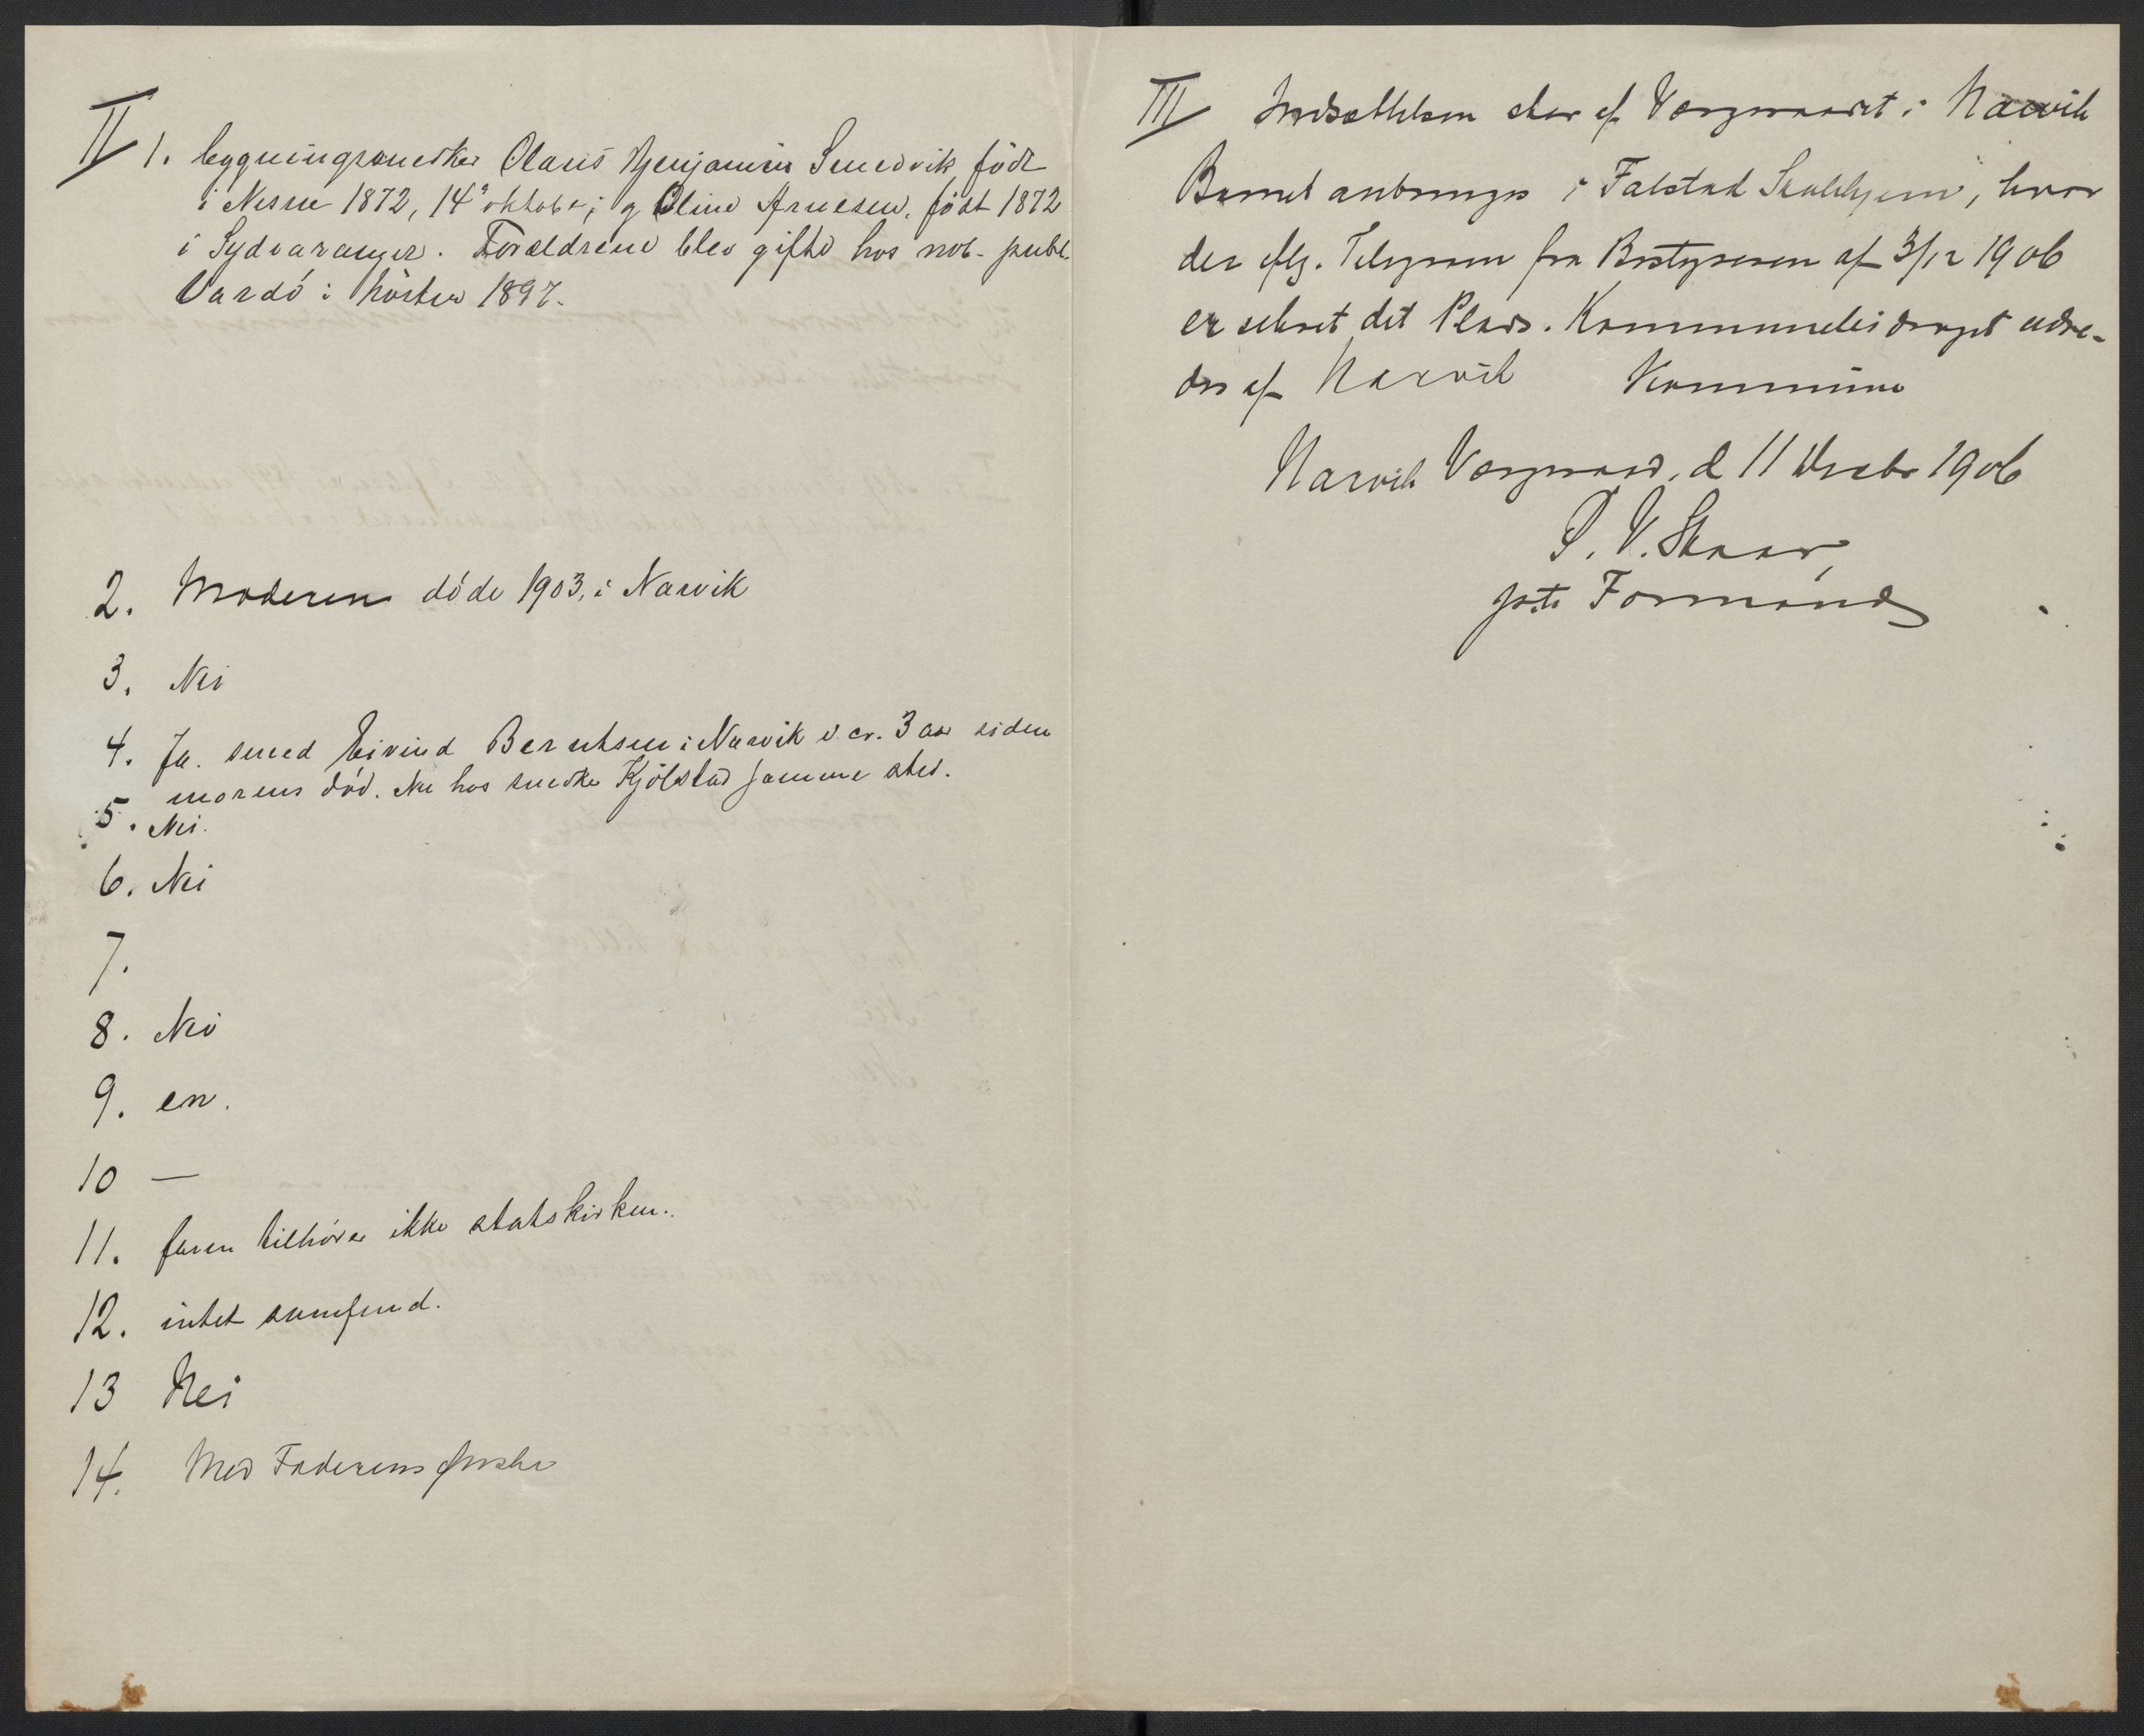 II 1. bygningssnedker Olaus Benjamin Smedvik, födt
i Nesne 1872, 14de oktober; og Oline Arnesen, födt 1872
i Sydvaranger. Forældrene blev gifte hos not. publ.
Vardö i hösten 1897.
2. Moderen döde 1903, i Narvik
3. Nei
4. Ja. smed Eivind Berntsen i Narvik i ca. 3 aar siden
morens död. Nu hos snedker Kjölstad samme sted.
5. Nei.
6. Nei
7.
8. Nei
9. en.
10 —
11. faren tilhörer ikke statskirken.
12. intet samfund.
13 Nei
14. Med Faderens Ønske
III Indsættelsen sker af Vergeraadet i Narvik
Barnet anbringes i Falstad Skolehjem, hvor
der iflg. Telegram fra Bestyreren af 3/12 1906
er sikret det Plads. Kommunebidraget udre-
des af Narvik Kommune
Narvik Vergeraad, d 11 Decbr 1906
P. V. Skaar,
Formand